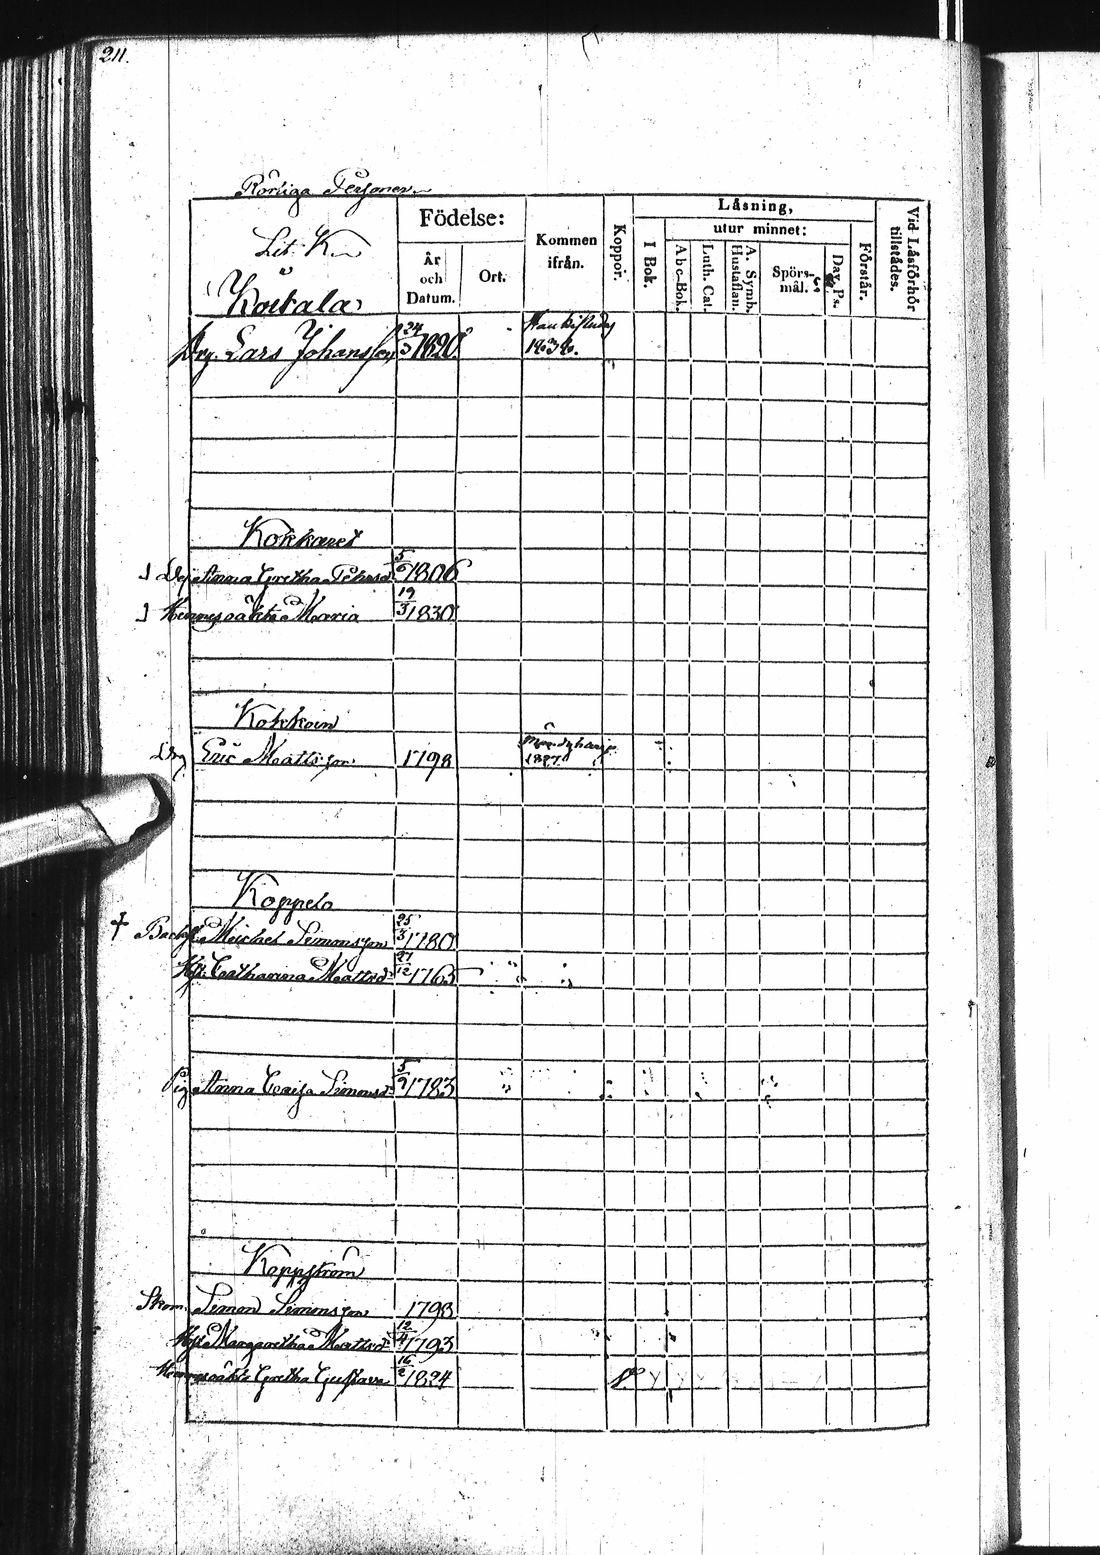 211.
Rörliga Personer
Lit. K.
Födelse:
År och Datum.
Ort.
Kommen ifrån.
Koppor.
Låsning,
I Bok.
utur minnet:
Abc-Bok.
Luth. Cat.
A. Symb. Hustaflan.
Spörs-mål.
Dav. Ps.
Förstår.
Vid Låsförhör tillstädes.
Koitala
Drg. Lars Johansson 24/3 1820
Kokkaret
Anna Gretha Pehrsd. 5/6 1806
Hennes oäkta Maria 19/3 1830
Kokkoin
Drg Eric Mattsson 1798 1837
Koppelo
† Michel Simonsson 25/3 1780
Hu. Catharina Mattsd. 27/12 1765
Pig. Anna Caisa Simonsd. 5/9 1783
Koppström
Skom. Simon Simonsson 1793
Hu. Margaretha Mattsd. 12/4 1793
Hennes oäkta Gretha Gustava 16/2 1824